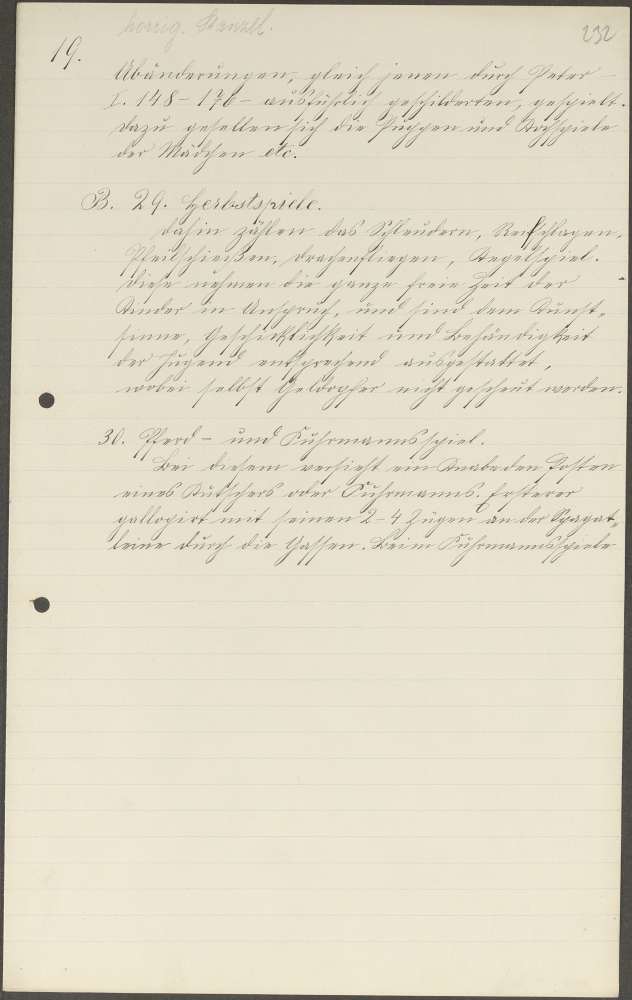 horrig. Stenzel.
232
19.
Abänderungen, gleich jenen durch Peter
I. 148 - 176 - ausführlich geschilderten, gespielt.
Dazu gesellen sich die Puppen und Kochspiele
der Mädchen etc.
B. 29. Herbstspiele.
Dahin zählen das Schleudern, Reifschlagen,
Pfeilschießen, Drachenfliegen, Kegelspiel.
Diese nehmen die ganze freie Zeit der
Kinder in Anspruch, und sind dem Kunst-
sinne, Geschicklichkeit und Behändigkeit
der Jugend entsprechend ausgestattet,
wobei selbst Geldopfer nicht gescheut werden.
30. Pferd- und Fuhrmannsspiel.
Bei diesem versieht ein Knabe den Posten
eines Kutschers oder Fuhrmanns. Ersterer
gallopirt mit seinen 2-4 Zügen an der Spagat-
leine durch die Gassen. Beim Fuhrmannsspiele